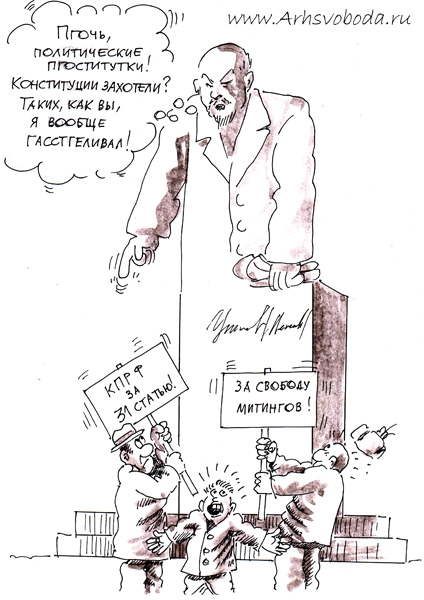 www.Arhsvoboda.ru
Пгочь,
политические
пгоститутки!
Конституции захотели?
Таких, как вы,
я вообще
гасстгеливал!
Ульянов (Ленин)
КПРФ
ЗА
31 СТАТЬЮ!
ЗА СВОБОДУ
МИТИНГОВ!